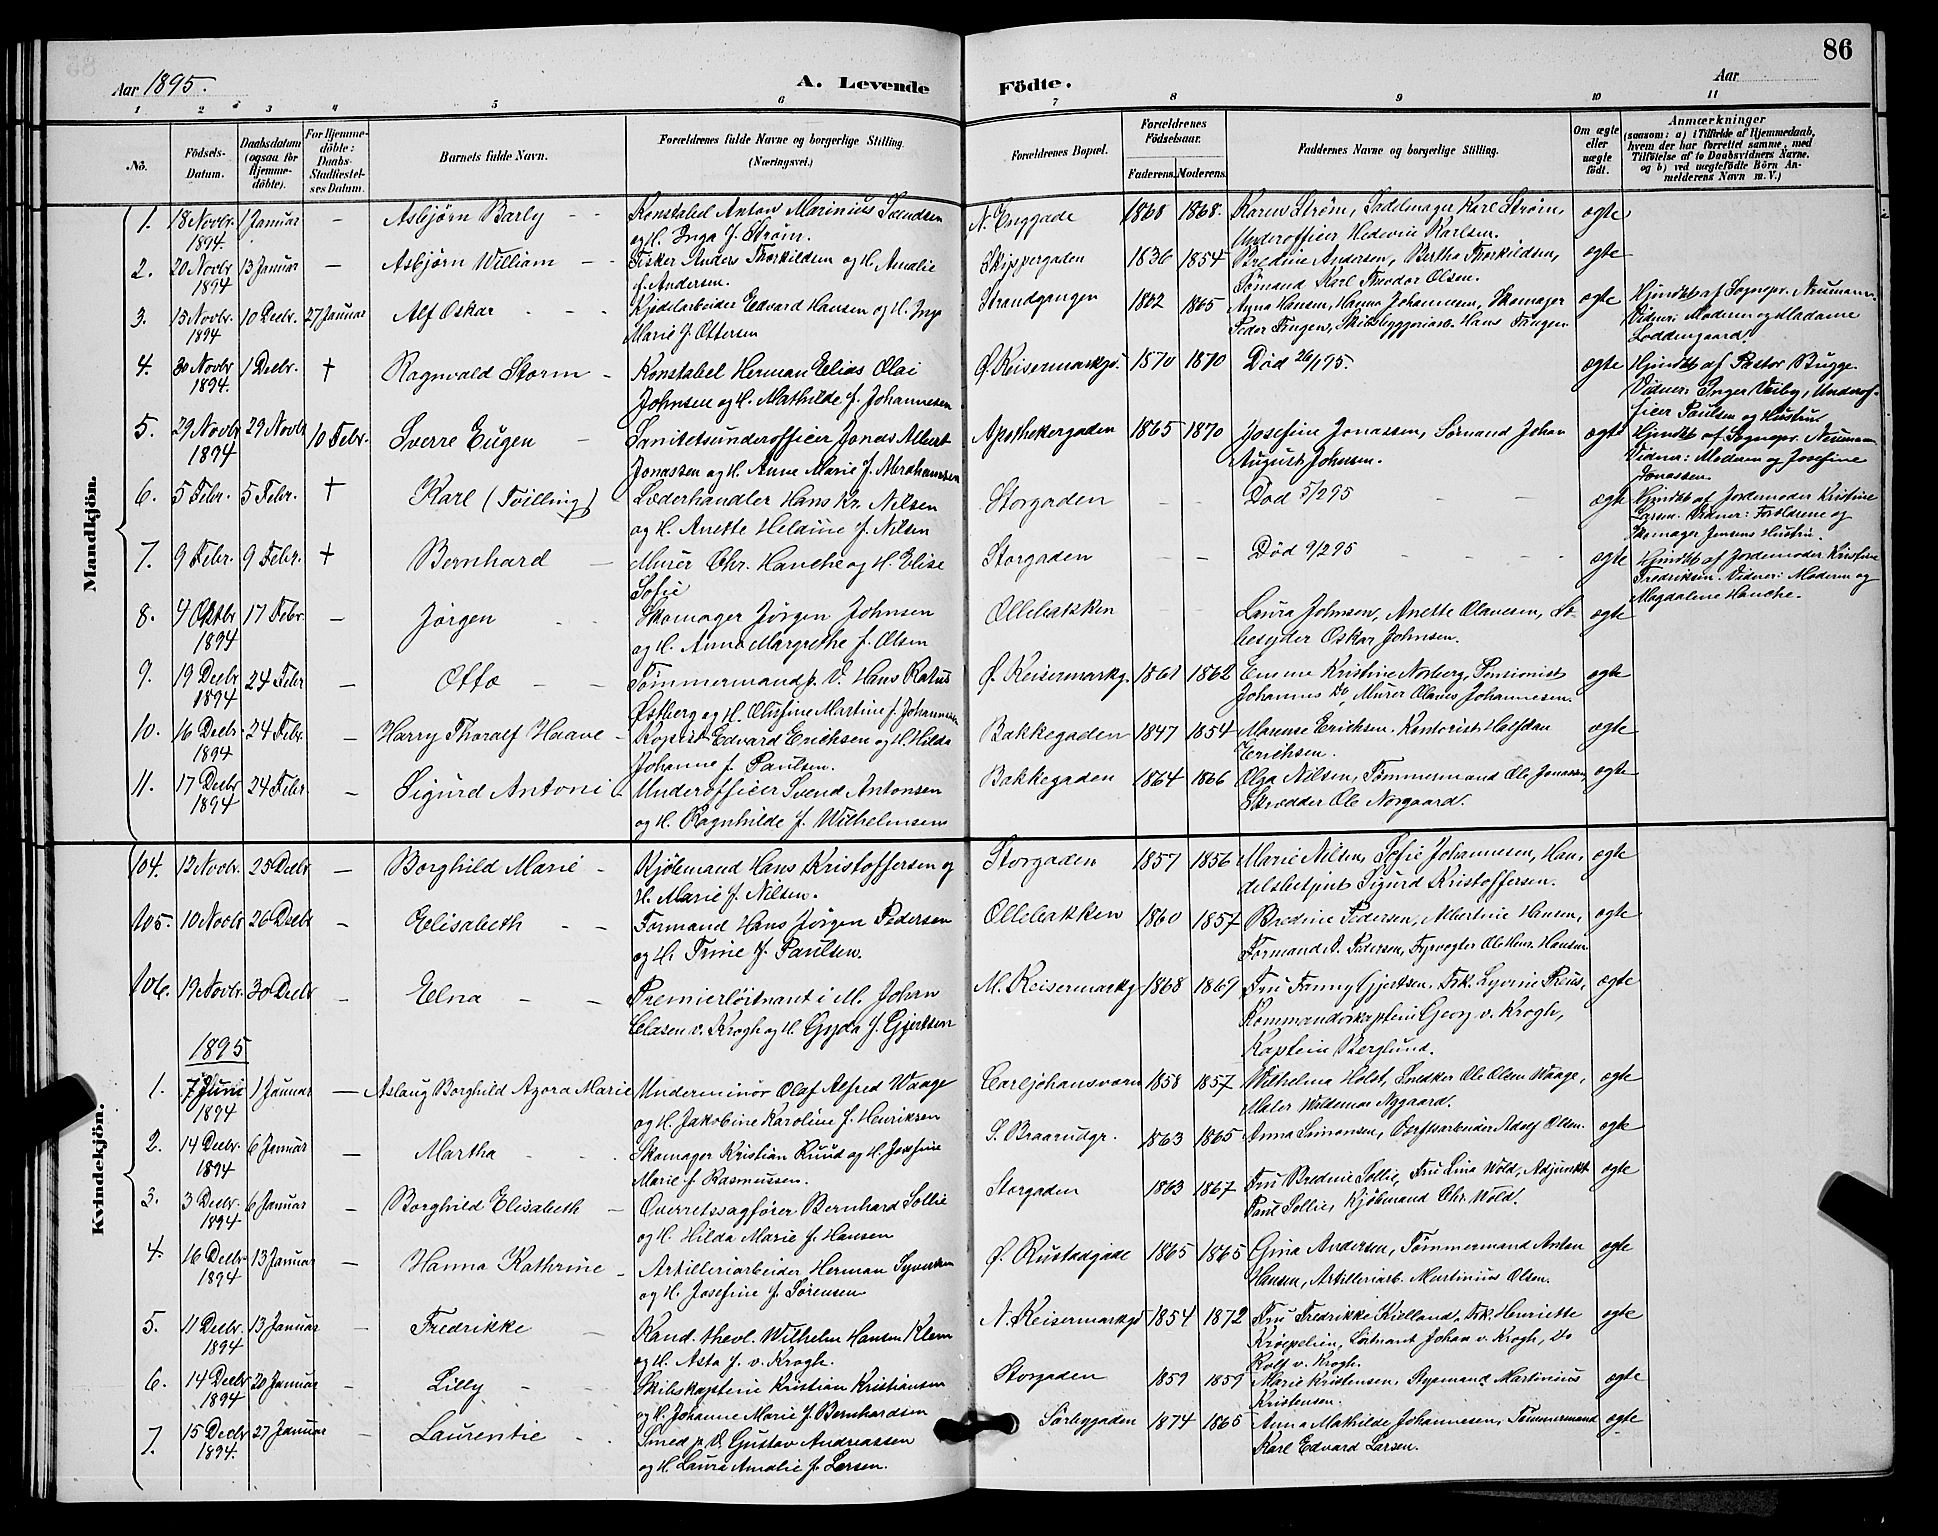 86
Aar 1895.
A. Levende Födte.
Aar
1 2 3 4 5 6 7 8 9 10 11
Nö.
Födsels-Datum.
Daabsdatum (ogsaa for Hjemmedöbte).
For Hjemmedöbte: Daabs-Stadfæstelses Datum.
Barnets fulde Navn.
Forældrenes fulde Navne og borgerlige Stilling. (Næringsvei.)
Forældrenes Bopæl.
Forældrenes Födselsaar.
Faderens. Moderens.
Faddernes Navne og borgerlige Stilling.
Om ægte eller uægte födt.
Anmærkninger (saasom: a) i Tilfælde af Hjemmedaab, hvem der har forrettet samme, med Tilföielse af to Daabsvidners Navne, og b) ved uægtefödte Börn Anmelderens Navn m. V.)
Mandkjön.
1. 18 Novbr. 1894. 1 Januar – Asbjørn Barly – – Konstabel Anton Marinius Svendsen og H. Inga f. Strøm. N. Enggade 1868 1868. Karen Strøm, Sadelmager Karl Strøm, Underofficer Hedevin Karlsen. ægte
2. 20 Novbr 1894 13 Januar – Asbjørn William – – Fisker Anders Thorkildsen og H. Amalie f. Andersen. Skippergaden 1836 1854 Bredine Andersen, Berthe Thorkildsen, Sømand Karl Theodor Olsen. ægte
3. 15 Novbr. 1894 10 Decbr. 27 Januar Alf Oskar – – – Kjedelarbeider Edvard Hansen og H. Inga Marie f. Ottersen Strandgangen 1862 1865 Anna Hansen, Hanna Johannesen, Skomager Peder Tangen, Skibsbyggeriarb. Hans Tangen ægte Hjmdbt af Sognepr. Neumann. Vidner: Moderen og Madame Loddengaard.
4. 30 Novbr 1894. 1 Decbr. † Ragnvald Storm – Konstabel Herman Elias Olai Johnsen og H. Mathilde f. Johannesen Ø. Keisermarkgd. 1870 1870 Død 26/1 95. ægte Hjmdbt af Pastor Bugge. Vidner: Inger Viby, Underofficer Paulsen og Hustru.
5. 29 Novbr 1894 29 Novbr 10 Febr. Sverre Eugen – Sanitetsunderofficer Jonas Albert Jonassen og H. Anne Marie f. Abrahamsen Apothekergaden 1865 1870 Josefine Jonassen, Sømand Johan August Johnsen. ægte Hjmdbt af Sognepr. Neumann Vidner: Moderen og Josefine Jonassen.
6. 5 Febr. 5 Febr. † Karl (Tvilling) Læderhandler Hans Kr. Nilsen og H. Anette Heldine f. Nilsen Storgaden – – Død 5/2 95 – – ægte Hjmdbt af Jordemoder Kristine Larsen. Vidner: Forældrene og Skomager Jensens Hustru.
7. 9 Febr. 9 Febr. † Bernhard – Murer Chr. Hanche og H. Elise Sofie Storgaden – – Død 9/2 95 – – – ægte Hjmdbt af Jordemoder Kristine Fredriksen. Vidner: Moderen og Magdalene Hanche.
8. 4 Oktbr 1894 17 Febr – Jørgen – – Skomager Jørgen Johnsen og H. Anna Margrethe f. Olsen Ollebakken Laura Johnsen, Anette Olavesen, Løbesyder Oskar Johnsen. ægte
9. 19 Decbr 1894 24 Febr – Otto – – Tømmermand p. V. Hans Ratus Østberg og H. Olufine Martine f. Johannesen Ø. Keisermarkg. 1861 1862 Emme Kristine Norberg, Pensionist Johannes Do, Murer Olaves Johannesen. ægte
10. 16 Decbr. 1894 24 Febr. – Harry Thoralf Haave – Kopist Edvard Erichsen og H. Hilda Johanne f. Paulsen. Bakkegaden 1847 1854 Marense Erichsen. Kontorist Halfdan Erichsen. ægte
11. 17 Decbr 1894 24 Febr. – Sigurd Antoni – Underofficer Svend Antonsen og H. Ragnhilde f. Wilhelmsen Bakkegaden 1864 1866 Olga Nilsen, Tømmermand Ole Jonassen, Skrædder Ole Norgaard. ægte
Kvindekjön.
104. 12 Novbr. 25 Decbr – Borghild Marie – Kjøbmand Hans Kristoffersen og H. Marie f. Nilsen. Storgaden 1857 1856 Marie Nilsen, Sofie Johannesen, Handelsbetjent Sigurd Kristoffersen. ægte
105. 10 Novbr 26 Decbr – Elisabeth – – Formand Hans Jørgen Pedersen og H. Trine f. Paulsen. Ollebakken 1860 1857 Bredine Pedersen, Albertine Hansen, Formand A. Pedersen, Fyrvogter Ole Henr. Hansen. ægte
106. 19 Novbr. 30 Decbr – Elna – – Premierløitnant i M. Johan Clasen v. Krogh og H. Gyda f. Gjertsen M. Keisermarkg 1868 1869 Fru Fanny Gjertsen, Frk. Lyvinie Preus, Kommandørkaptein Georg v. Krogh, Kaptein Berglund. ægte
1895
1. 7 Juni 1894 1 Januar – Aslaug Borghild Agora Marie Underminør Olaf Alfred Waage og H. Jakobine Karoline f. Henriksen Carljohansværn 1858 1857 Wilhelma Holst, Snedker Ole Olsen Waage, Maler Waldemar Nygaard. ægte
2. 14 Decbr. 1894 6 Januar – Martha – – Skomager Kristian Ruud og H. Josefine Marie f. Rasmussen. S. Braarudgr. 1863 1865 Anna Simonsen, Værftsarbeider Adolf Olsen. ægte
3. 3 Decbr. 1894 6 Januar – Borghild Elisabeth – Overretssagfører Bernhard Sollie og H. Hilda Marie f. Hansen Storgaden 1863 1867 Fru Bredine Sollie, Fru Lina Wold, Adjunkt Paul Sollie, Kjøbmand Chr. Wold. ægte
4. 16 Decbr. 1894 13 Januar – Hanna Kathrine – Artilleriarbeider Herman Syvertsen og H. Josefine f. Sørensen Ø. Rustadgade 1865 1865 Gina Andersen, Tømmermand Anton Hansen, Artilleriarb. Martinius Olsen. ægte
5. 11 Decbr. 1894 13 Januar – Fredrikke – Kand. theol. Wilhelm Hansen Klem og H. Asta f. v. Krogh. N. Keisermarkgd 1854 1872 Fru Fredrikke Kielland, Frk. Henriette Krøepelien, Løitnant Johan v. Krogh, do Rolf v. Krogh. ægte
6. 14 Decbr 1894 20 Januar – Lilly – – Skibskaptein Kristian Kristiansen og H. Johanne Marie f. Bernhardsen Storgaden 1859 1859 Marie Kristensen, Styrmand Martinius Kristensen. ægte
7. 15 Decbr 1894. 27 Januar – Laurentie – – Smed p. V. Gustav Andreassen og H. Laura Amalie f. Larsen. Sørbygaden 1874 1865 Anna Mathilde Johannesen, Tømmermand Karl Edvard Larsen. ægte